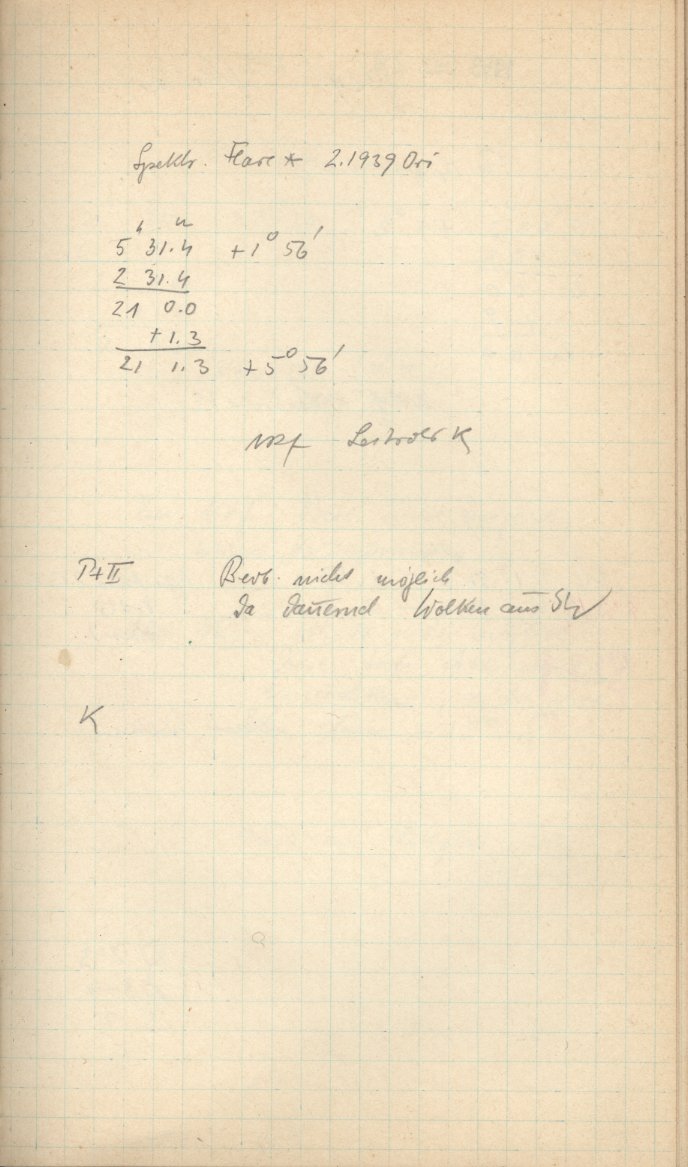 Spektr. Flare * 2.1939 Ori
h m
5 31.4 +1° 56'
2 31.4
21 0.0
+1.3
21 1.3 +5° 56'
K
P+II Beob. nicht möglich
da dauernd Wolken aus SW
K